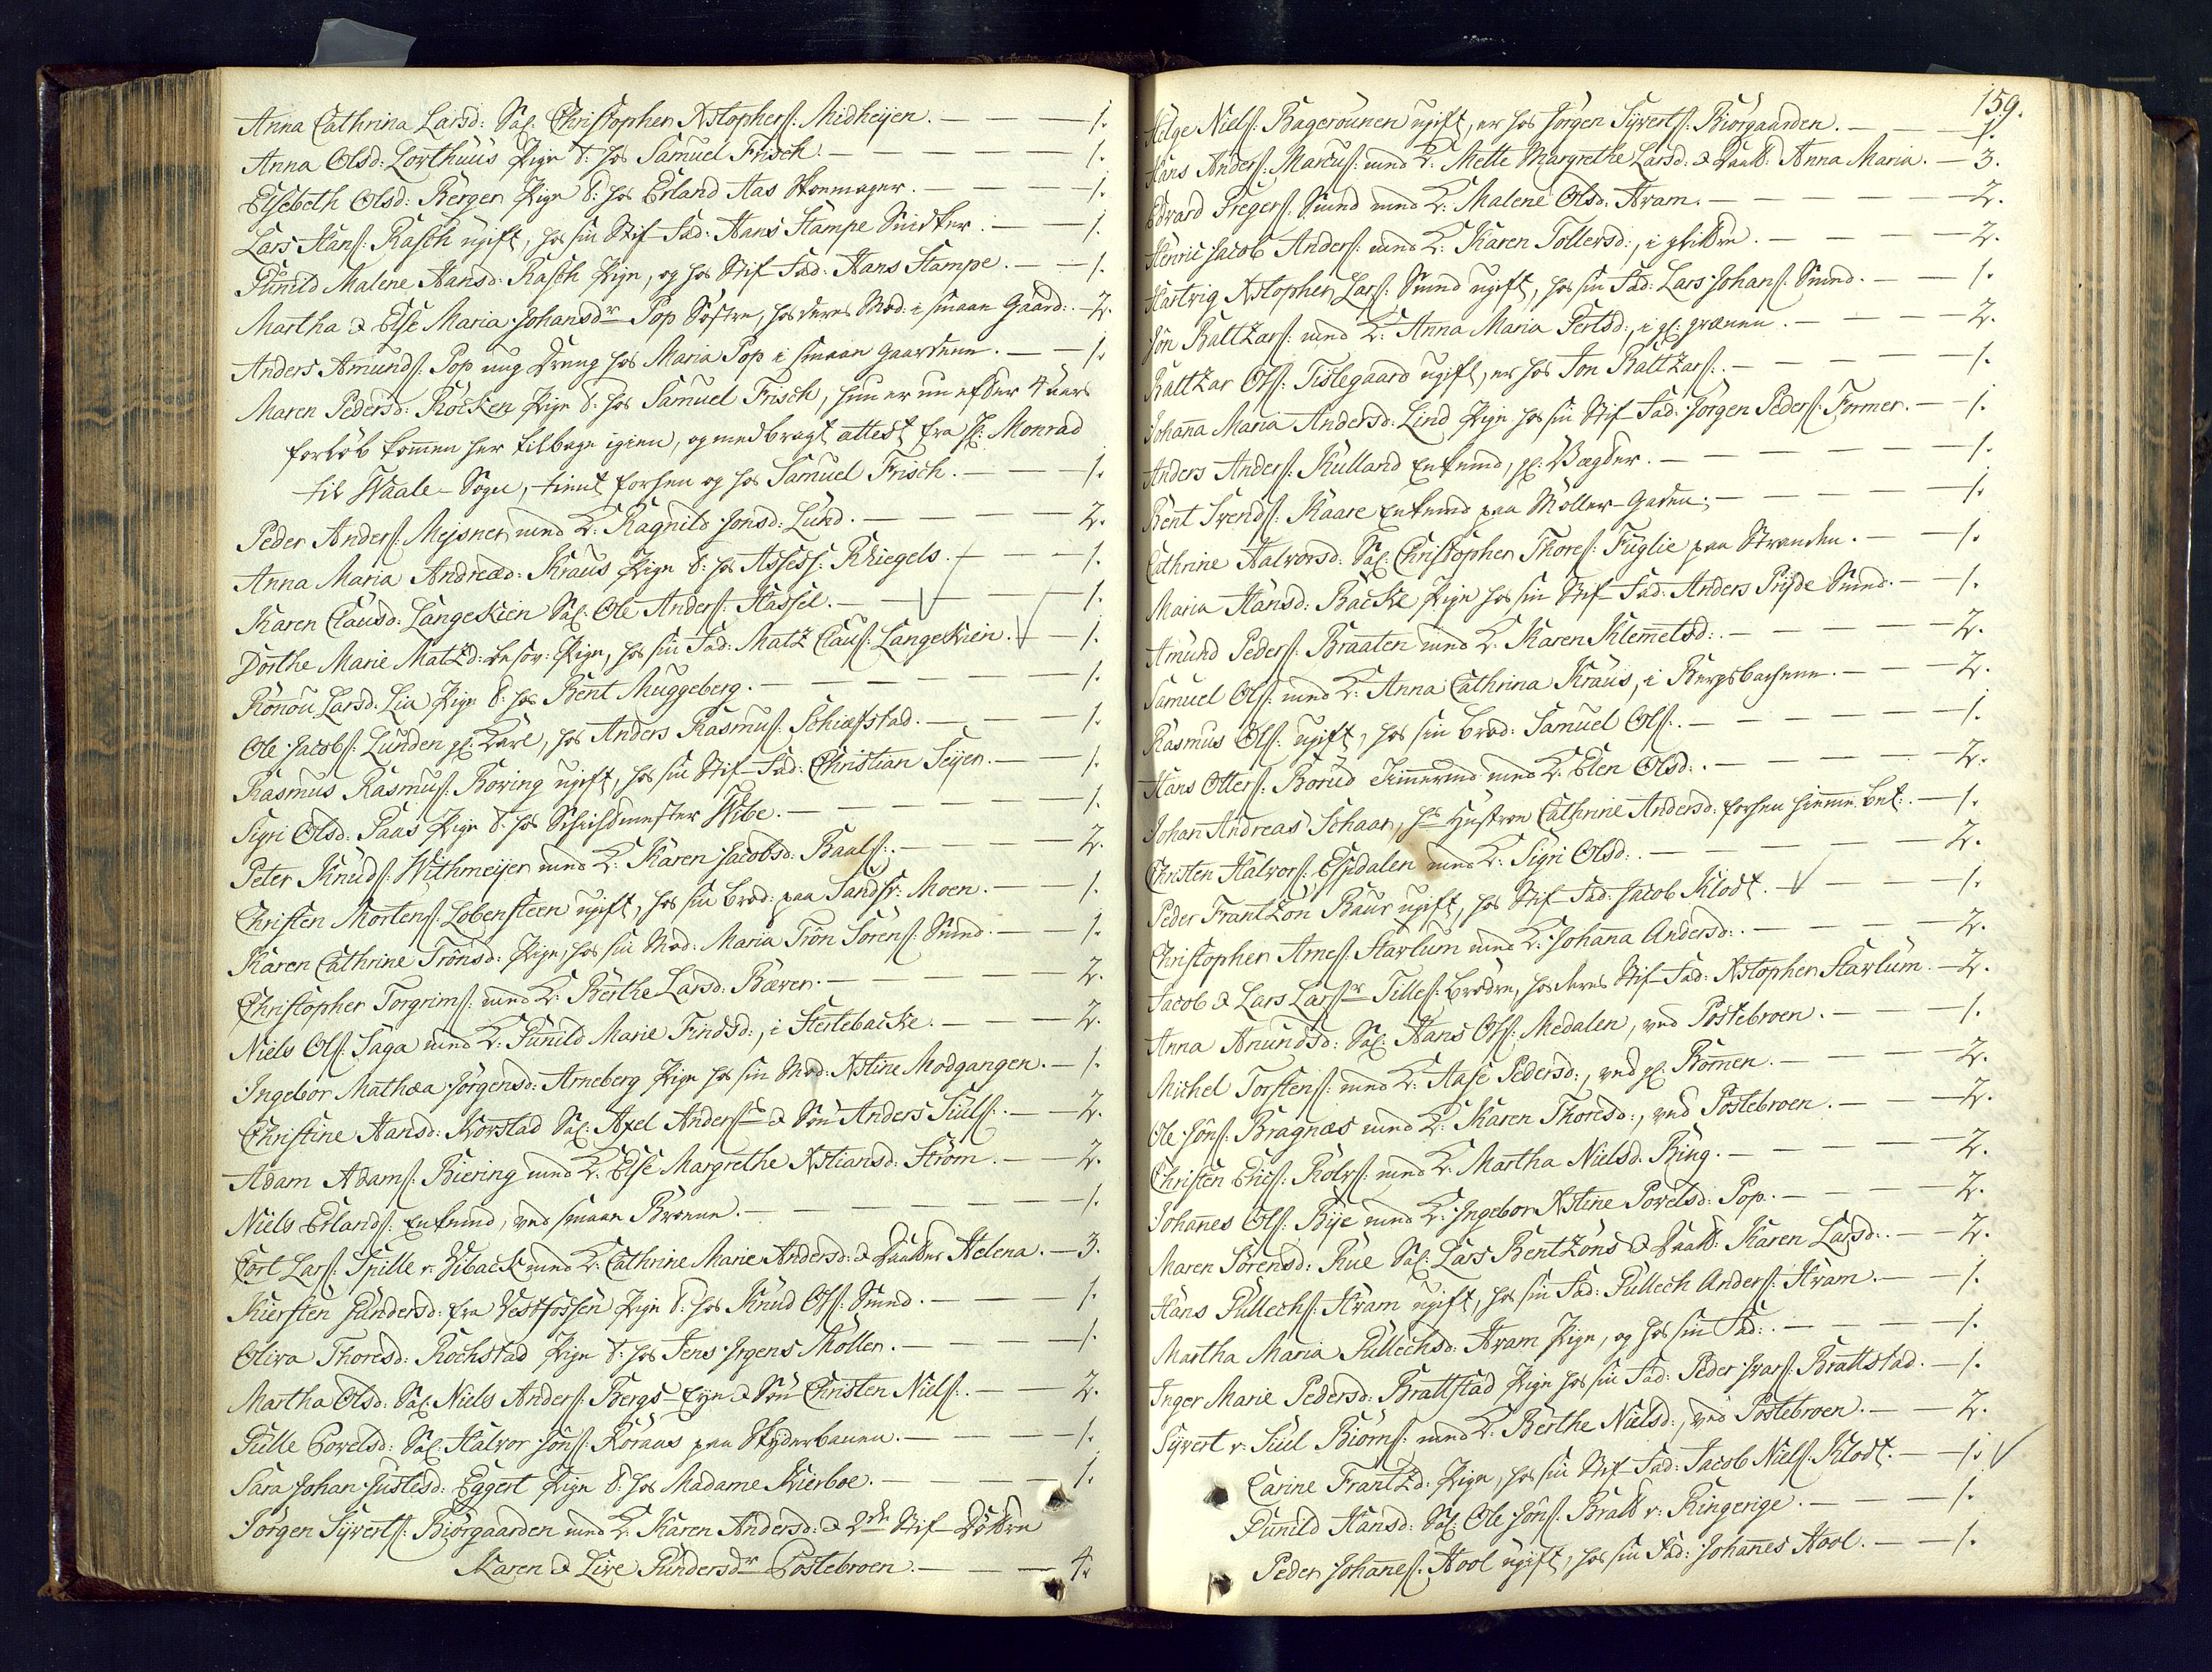 Anna Cathrina Larsd: Sal: Christopher Xstophers: Midheÿen. — — — 1.
Anna Olsd: Lorthuus Pige t: hos Samuel Frisch. — — — — 1.
Elsebeth Olsd: Bergen Pige t: hos Erland Aas Skomager. — — — 1.
Lars Hans: Rasch ugift, hos sin Stif-Fad: Hans Stampe Snidker. — — 1.
Gunild Malene Hansd: Rasch Pige, og hos Stif-Fad: Hans Stampe. — — 1.
Martha & Else Maria Johansdr Pop Søstre, hos deres Mod: i smaae Gaard: — 2.
Anders Amunds: Pop ung Dreng hos Maria Pop i smaae Gaardene. — — 1.
Maren Pedersd: Rocken Pige t: hos Samuel Frisch, hun er nu efter 4 aars
forløb kommen her tilbage igien, og medbragt attest fra Hr: Monrad
til Waale-Sogn, tient forhen og hos Samuel Frisch. — — — 1.
Peder Anders: Mejsner med K: Ragnild Jonsd: Lund. — — — — 2.
Anna Maria Andread: Kraus Pige t: hos Assess: Rhiegels. — — — 1.
Karen Clausd: Langekien Sal: Ole Anders: Hassel. — — — — 1.
Dorthe Marie Matzd: besov: Pige, hos sin Fad: Matz Claus: Langekien. — 1.
Rønou Larsd: Lia Pige t: hos Bent Muggeberg. — — — — 1.
Ole Jacobs: Lunden gl: Karl, hos Anders Rasmus: Schiefstad. — — — 1.
Rasmus Rasmus: Boring ugift, hos sin Stif-Fad: Christian Seÿer. — — 1.
Sigri Olsd: Paas Pige t: hos Wibe. — — — — 1.
Peter Knuds: Withmeÿer med K: Karen Jacobsd: Baals: — — — — 2.
Christen Mortens: Lobensteen ugift, hos sin Brod: paa Landfr: Moen. — — 1.
Karen Cathrine Trönsd: Pige, hos sin Mod: Maria Trön Sørens: Smed. — — 1.
Christopher Torgrims: med K: Berthe Larsd: Bæver. — — — — 2.
Niels Ols: Saga med K: Gunild Marie Findsd:, i Stertebacke. — — — 2.
Ingebor Mathea Jörgensd: Arneberg Pige hos sin Mod: Xstine Modgangen. — 1.
Christine Hansd: Korstad Sal: Axel Anders: & Søn Anders Siuls: — — 2.
Adam Adams: Biering med K: Else Margrethe Xstiansd: Strøm. — — 2.
Niels Erlands: Enkemd, ved smaae Broene. — — — — — 1.
Cort Lars: Spille v: Vibæck med K: Cathrine Marie Andersd: & Daatter Helena. — 3.
Kiersten Gundersd: fra Vestfossen Pige t: hos Knud Ols: Smed. — — — 1.
Oliva Thoresd: Rochstad Pige t: hos Jens Jrgens Møller. — — — 1.
Martha Olsd: Sal: Niels Anders: Bergs-Eje & Søn Christen Niels: — — 2.
Gulle Povelsd: Sal: Halvor Jöns: Koraus paa Skyderbanen. — — — 1.
Sara Johan Justesd: Eggert Pige t: hos Madame Kierboe. — — — — 1.
Jörgen Sÿverts: Biörgaarden med K: Karen Andersd: & 2de Stif-Døttre
Karen & Live Gundersdr Postebroen. — — — 4.
159.
Helge Niels: Bagerounen ugift, er hos Jörgen Sÿverts: Biörgaarden. — — — 1.
Hans Anders: Marcus: med K: Mette Margrethe Larsd: & Daatt: Anna Maria. — 3.
Edvard Gregers: Smed med K: Malene Olsd: Hram. — — — — — 2.
Henric Jacob Anders: med K: Karen Tollersd:, i glitren. — — — 2.
Hartvig Xstopher Lars: Smed ugift, hos sin Fad: Lars Johans: Smed. — — 1.
Jon Baltzars: med K: Anna Maria Gertsd:, i gl: grænen. — — — 2.
Baltzar Ols: Tislegaard ugift, er hos Jon Baltzars: — — — — 1.
Johana Maria Andersd: Lind Pige hos sin Stif-Fad: Jörgen Peders: Former. — — 1.
Anders Anders: Kulland Enkemd, gl: Vægter. — — — — — 1.
Bent Svends: Kaare Enkemd paa Møller-Gaden. — — — — 1.
Cathrine Halvorsd: Sal: Christopher Thores: Fuglie paa Stranden. — — 1.
Maria Hansd: Backe Pige hos sin Stif-Fad: Anders Prÿde Smed. — — 1.
Amund Peders: Braaten med K: Karen Klemetsd: — — — — 2.
Samuel Ols: med K: Anna Cathrina Kraus, i Bergsbachene. — — — 2.
Rasmus Ols: ugift, hos sin Brod: Samuel Ols: — — — — 1.
Hans Otters: Borud Timermd med K: Elen Olsd: — — — — 2.
Johan Andreas Schaar, hs Hustroe Cathrine Andersd: forhen hieme bet: — 1.
Christen Halvors: Espedalen med K: Sigri Olsd: — — — — 2.
Peder Frantzon Baur ugift, hos Stif-Fad: Jacob Klodt. — — — — 1.
Christopher Arnes: Harlum med K: Johana Andersd: — — — — 2.
Jacob & Lars Larsr Tilles: Brødre, hos deres Stif-Fad: Xstopher Harlum. — 2.
Anna Anundsd: Sal: Hans Ols: Medalen, ved Postebroen. — — — 1.
Michel Torstens: med K: Aase Pedersd:, ved gl: Bommen. — — — 2.
Ole Jöns: Bragnæs med K: Karen Thoresd:, ved Postebroen. — — — 2.
Christen Erics: Rolvs: med K: Martha Nielsd: Ring. — — — — 2.
Johanes Ols: Bÿe med K: Ingebor Xstine Povelsd: Pop. — — — — 2.
Maren Sörensd: Rue Sal: Lars Bentzöns & Daatt: Karen Larsd: — — 2.
Hans Gullechs: Hram ugift, hos sin Fad: Gullech Anders: Hram. — — 1.
Martha Maria Gullechsd: Hram Pige, og hos sin Fad: — — — — 1.
Inger Marie Pedersd: Brattstad Pige hos sin Fad: Peder Ivars: Brattstad. — 1.
Sÿvert v: Siul Biörns: med K: Berthe Nielsd:, ved Postebroen. — — — 2.
Carine Frantzd: Pige, hos sin Stif-Fad: Jacob Niels: Klodt. — — 1.
Gunild Hansd: Sal: Ole Jöns: Bratt v: Ringerige. — — — 1.
Peder Johanes: Hool ugift, hos sin Fad: Johanes Hool. — — 1.